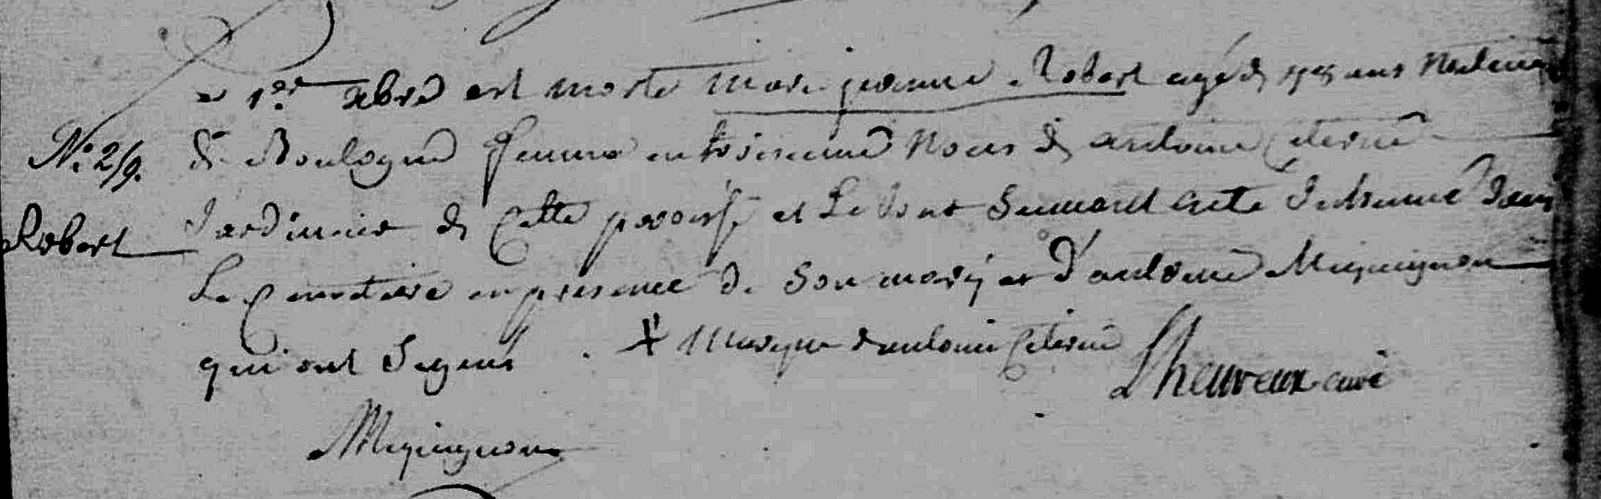 Le 1er xbre est morte marie jeanne Robert agée de ans native
N.° 219. de Boulogne femme en troisieme Noces de antoine Citerne
Robert Jardinier de cette paroisse et Le Jour Suivant a eté Inhumé dans
Le Cimetiere en presence de Son mary et D'antoine Miquignon
qui ont Signés . X Marque d'antoine Citerne
Lheureux curé
Miquignon